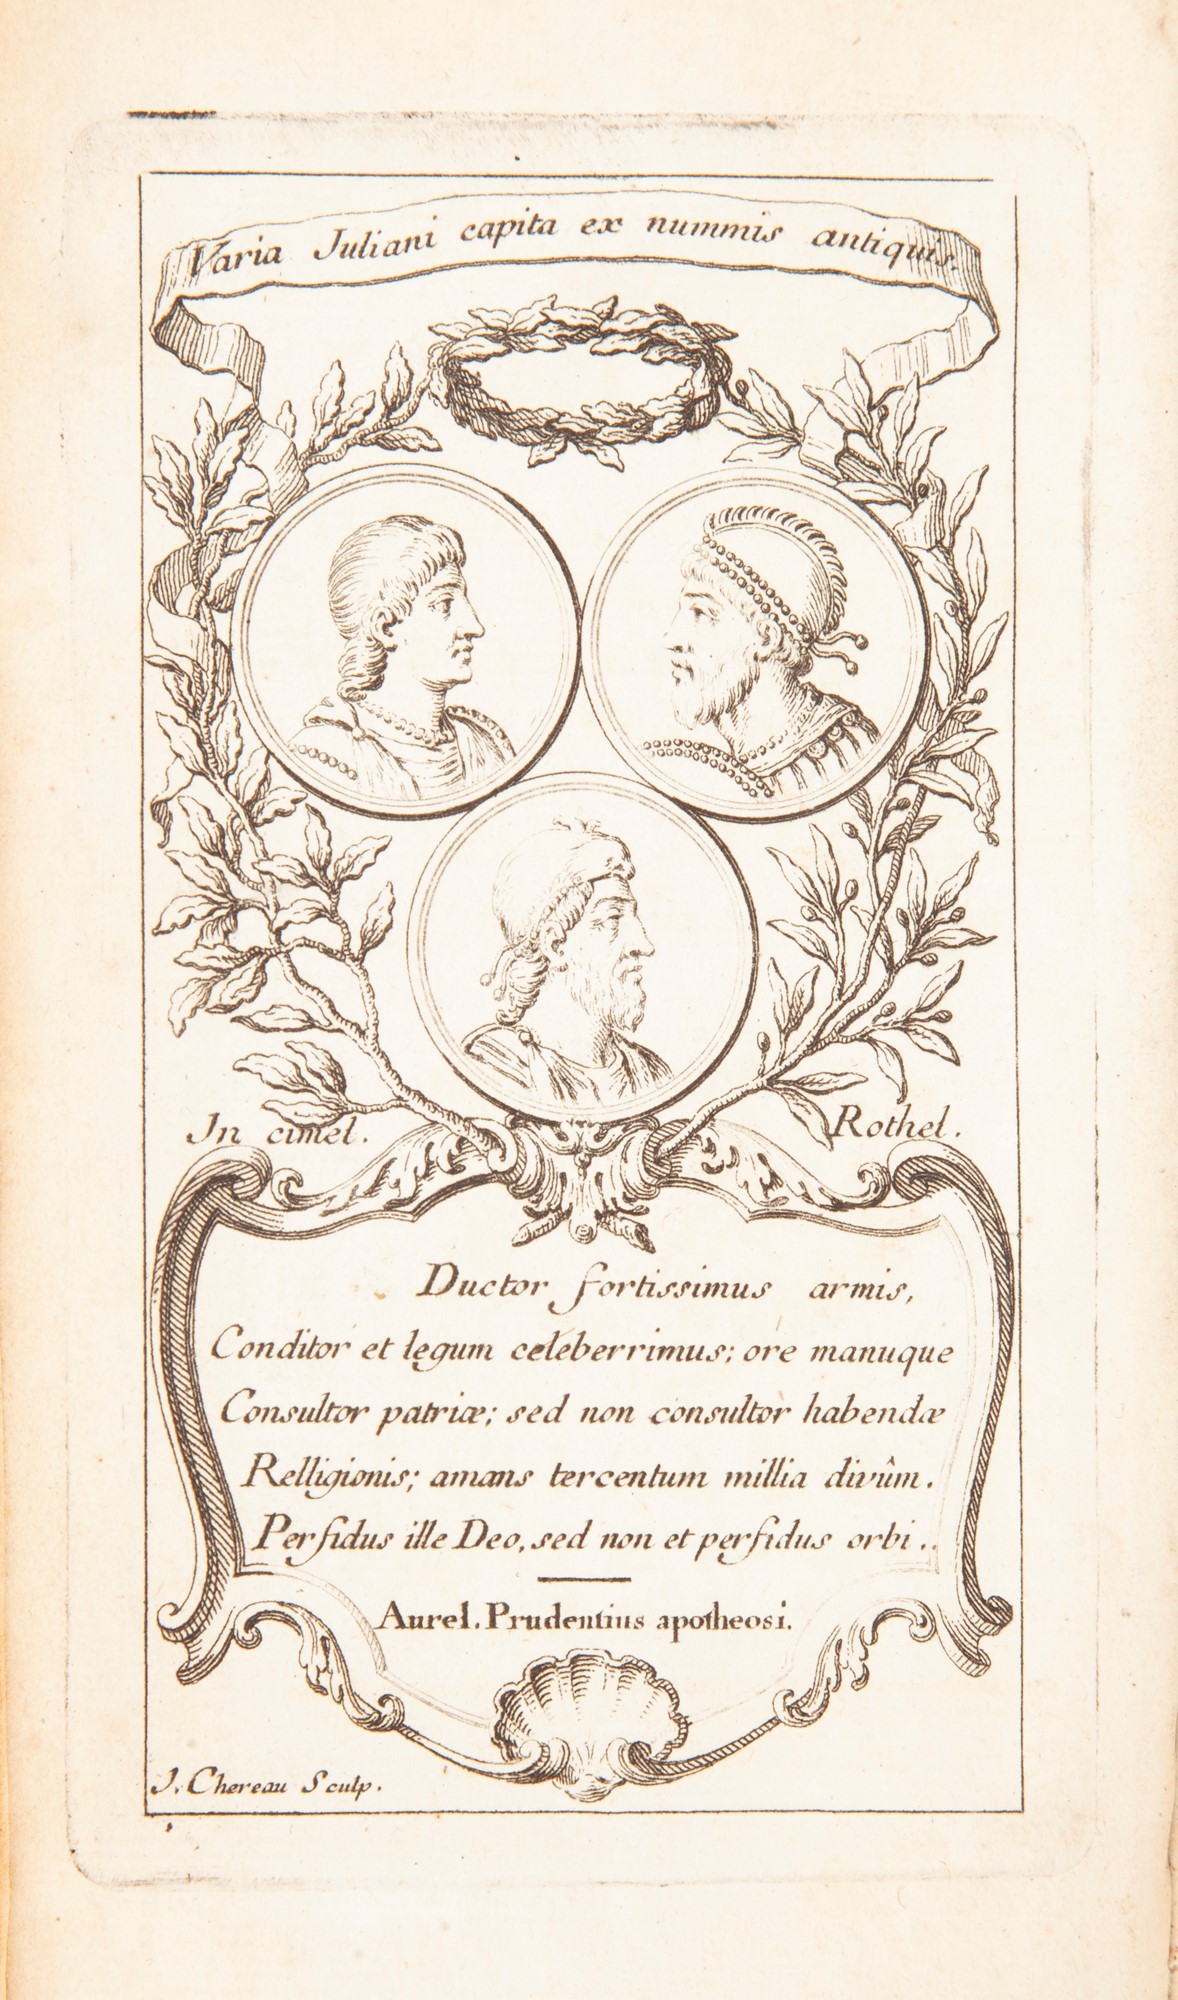 Varia Juliani capita ex nummis antiquis.
In cimel. Rothel.
Ductor fortissimus armis,
Conditor et legum celeberrimus; ore manuque
Consultor patriæ; sed non consultor habendæ
Relligionis; amans tercentum millia divûm.
Perfidus ille Deo, sed non et perfidus orbi..
Aurel. Prudentius apotheosi.
J. Chereau Sculp.